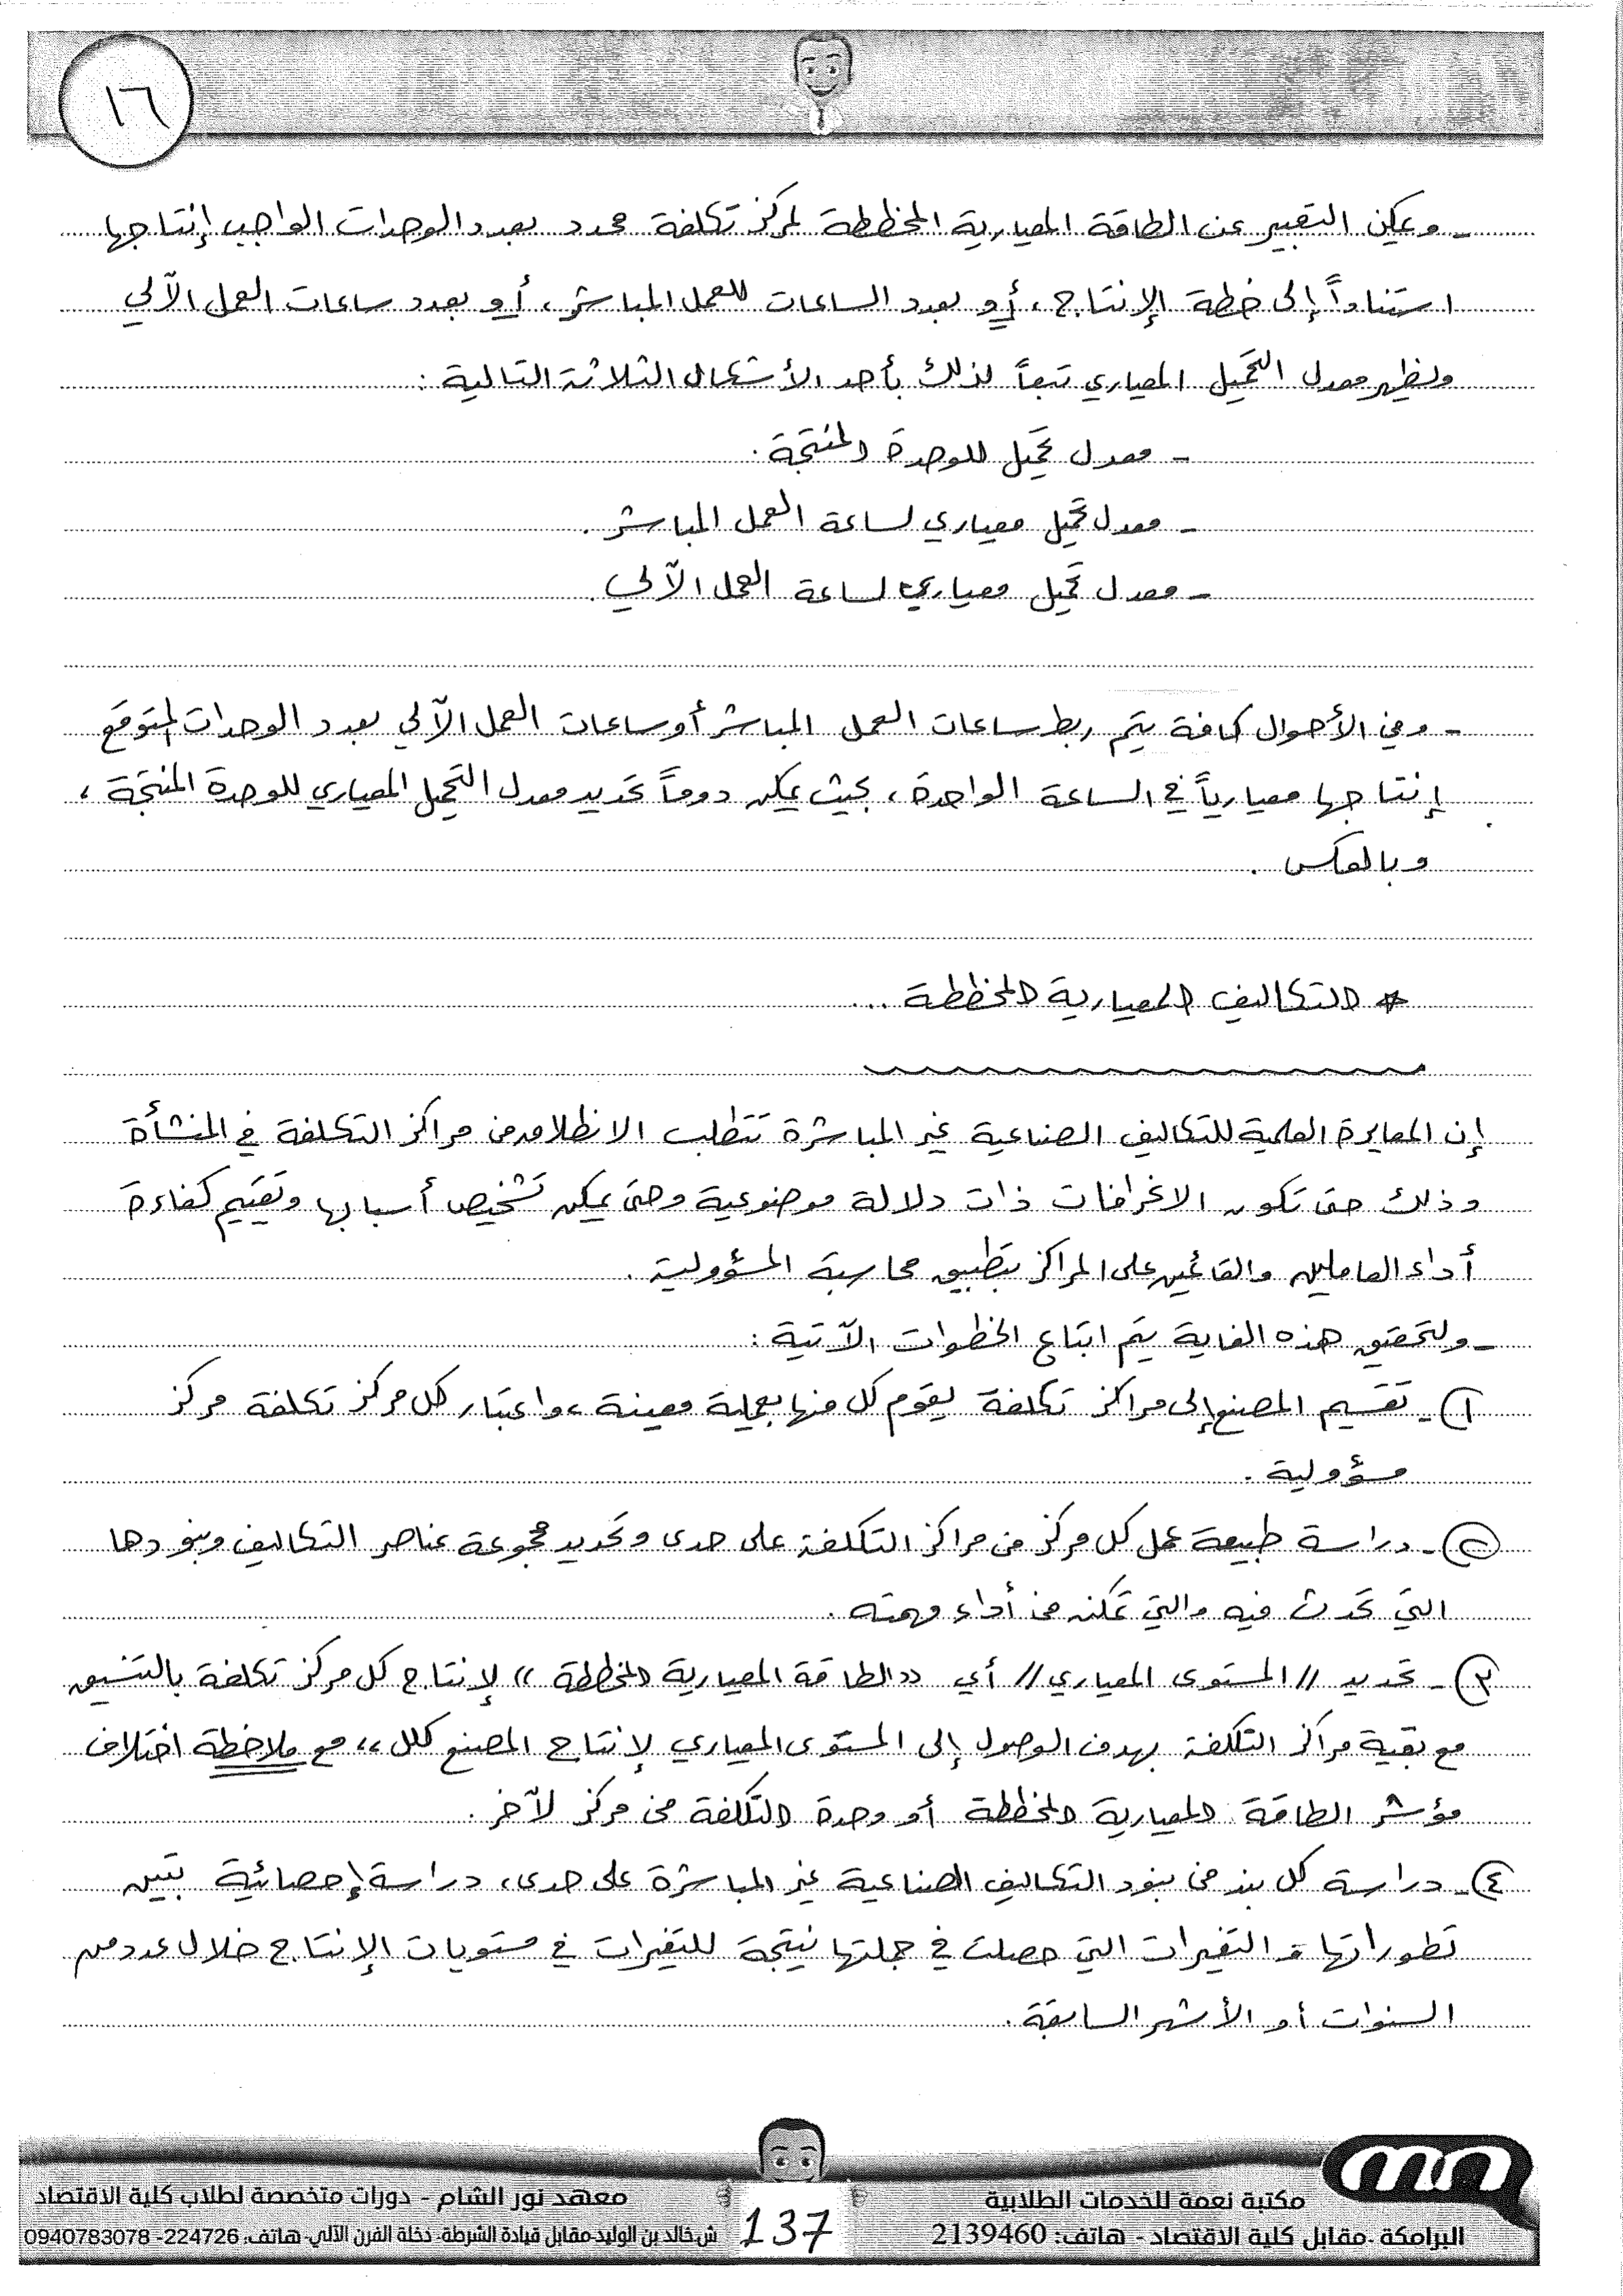 ١٦
- ويمكن التعبير عن الطاقة المعيارية المخططة لمركز تكلفة محدد بعدد الوحدات الواجب إنتاجها
استناداً إلى خطة الإنتاج، أو بعدد الساعات للعمل المباشر، أو بعدد ساعات العمل الآلي
ويظهر معدل التحميل المعياري تبعاً لذلك بأحد الأشكال الثلاثة التالية :
- معدل تحميل للوحدة المنتجة .
- معدل تحميل معياري لساعة العمل المباشر .
- معدل تحميل معياري لساعة العمل الآلي .
- وفي الأحوال كافة يتم ربط ساعات العمل المباشر أو ساعات العمل الآلي بعدد الوحدات المتوقع
إنتاجها معيارياً في الساعة الواحدة، بحيث يمكن دوماً تحديد معدل التحميل المعياري للوحدة المنتجة ،
وبالعكس .
* التكاليف المعيارية المخططة ...
إن المعايرة العلمية للتكاليف الصناعية غير المباشرة تتطلب الانطلاق من مراكز التكلفة في المنشأة
وذلك حتى تكون الانحرافات ذات دلالة موضوعية وحتى يمكن تشخيص أسبابها وتقييم كفاءة
أداء العاملين والقائمين على المراكز بتطبيق محاسبة المسؤولية .
- ولتحقيق هذه الغاية يتم اتباع الخطوات الآتية :
١- تقسيم المصنع إلى مراكز تكلفة يقوم كل منها بعملية معينة، واعتبار كل مركز تكلفة مركز
مسؤولية .
٢- دراسة طبيعة عمل كل مركز من مراكز التكلفة على حدى وتحديد مجموعة عناصر التكاليف وبنودها
التي تحدث فيه والتي تمكنه من أداء مهمته .
٣- تحديد // المستوى المعياري // أي «الطاقة المعيارية المخططة» لإنتاج كل مركز تكلفة بالتنسيق
مع بقية مراكز التكلفة بهدف الوصول إلى المستوى المعياري لإنتاج المصنع ككل ،، مع ملاحظة اختلاف
مؤشر الطاقة المعيارية المخططة أو وحدة التكلفة من مركز لآخر .
٤- دراسة كل بند من بنود التكاليف الصناعية غير المباشرة على حدى، دراسة إحصائية تبين
تطوراتها و التغيرات التي حصلت في جملتها نتيجة للتغيرات في مستويات الإنتاج خلال عدد من
السنوات أو الأشهر السابقة .
مكتبة نعمة للخدمات الطلابية
البرامكة -مقابل كلية الاقتصاد - هاتف: 2139460
137
معهد نور الشام - دورات متخصصة لطلاب كلية الاقتصاد
ش خالد بن الوليد-مقابل قيادة الشرطة- دخلة الفرن الآلي- هاتف: 224726- 0940783078